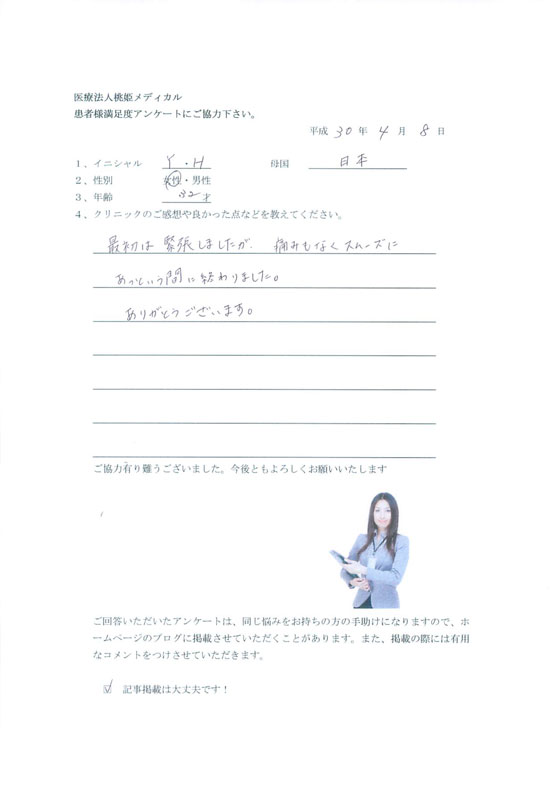 医療法人桃姫メディカル
患者様満足度アンケートにご協力下さい。
平成 30 年 4 月 8 日
1、イニシャル Y・H 母国 日本
2、性別 女性・男性
3、年齢 32才
4、クリニックのご感想や良かった点などを教えてください。
最初は緊張しましたが、痛みもなくスムーズに
あっという間に終わりました。
ありがとうございます。
ご協力有り難うございました。今後ともよろしくお願いいたします
ご回答いただいたアンケートは、同じ悩みをお持ちの方の手助けになりますので、ホ
ームページのブログに掲載させていただくことがあります。また、掲載の際には有用
なコメントをつけさせていただきます。
☑ 記事掲載は大丈夫です！